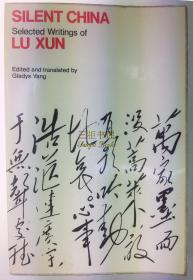 SILENT CHINA
Selected Writings of
LU XUN
Edited and translated by
Gladys Yang
萬家墨面
没蒿莱敢
有歌吟動
地哀心事
浩茫連廣宇
于無聲處聽